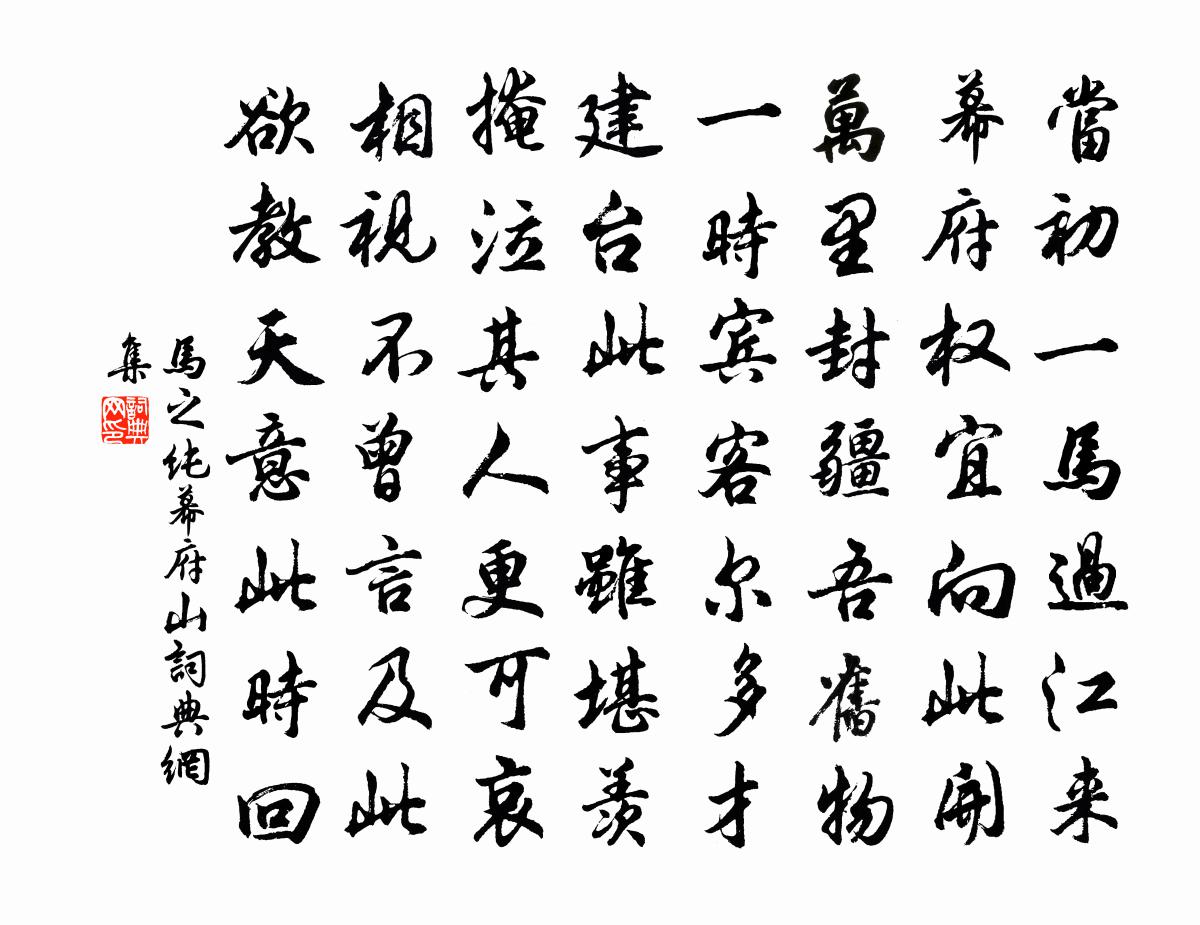 當初一馬過江来
幕府权宜向此開
萬里封疆吾舊物
一時宾客尔多才
建台此事雖堪羨
掩泣其人更可哀
相視不曾言及此
欲教天意此時回
馬之纯幕府山詞典網
集
詞典网印